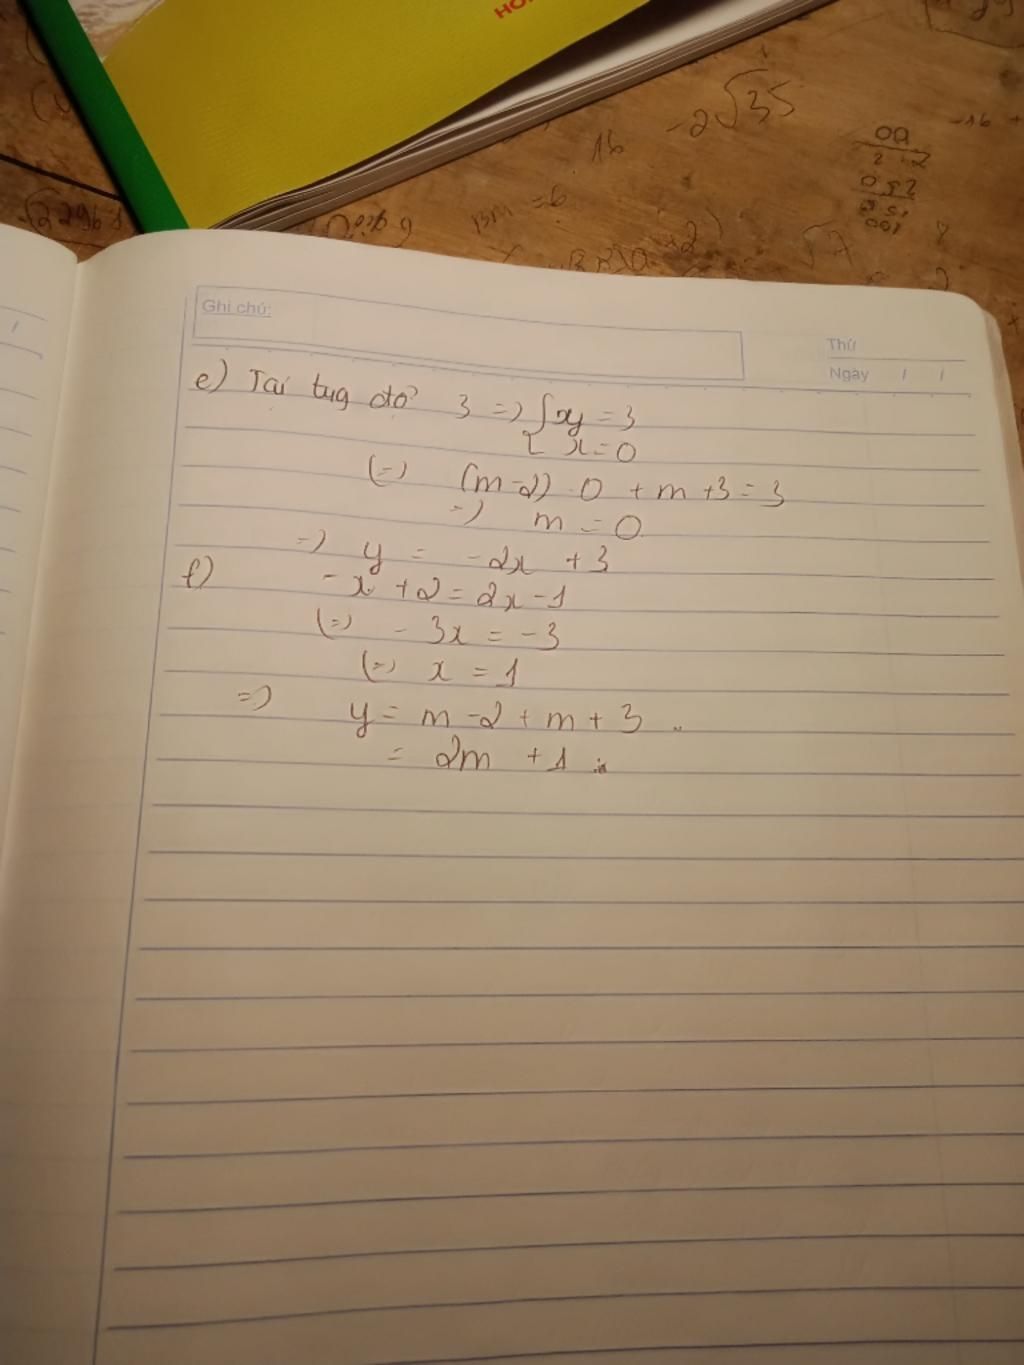 HO
-2√35
16
-16 +
BM = 6
√7
Ghi chú:
Thứ
Ngày / /
e) Tại tug độ 3 => { y = 3
x = 0
(=) (m-2) . 0 + m + 3 = 3
=) m = 0
=) y = -2x + 3
f) -x + 2 = 2x - 1
(=) - 3x = -3
(=) x = 1
=) y = m - 2 + m + 3
= 2m + 1